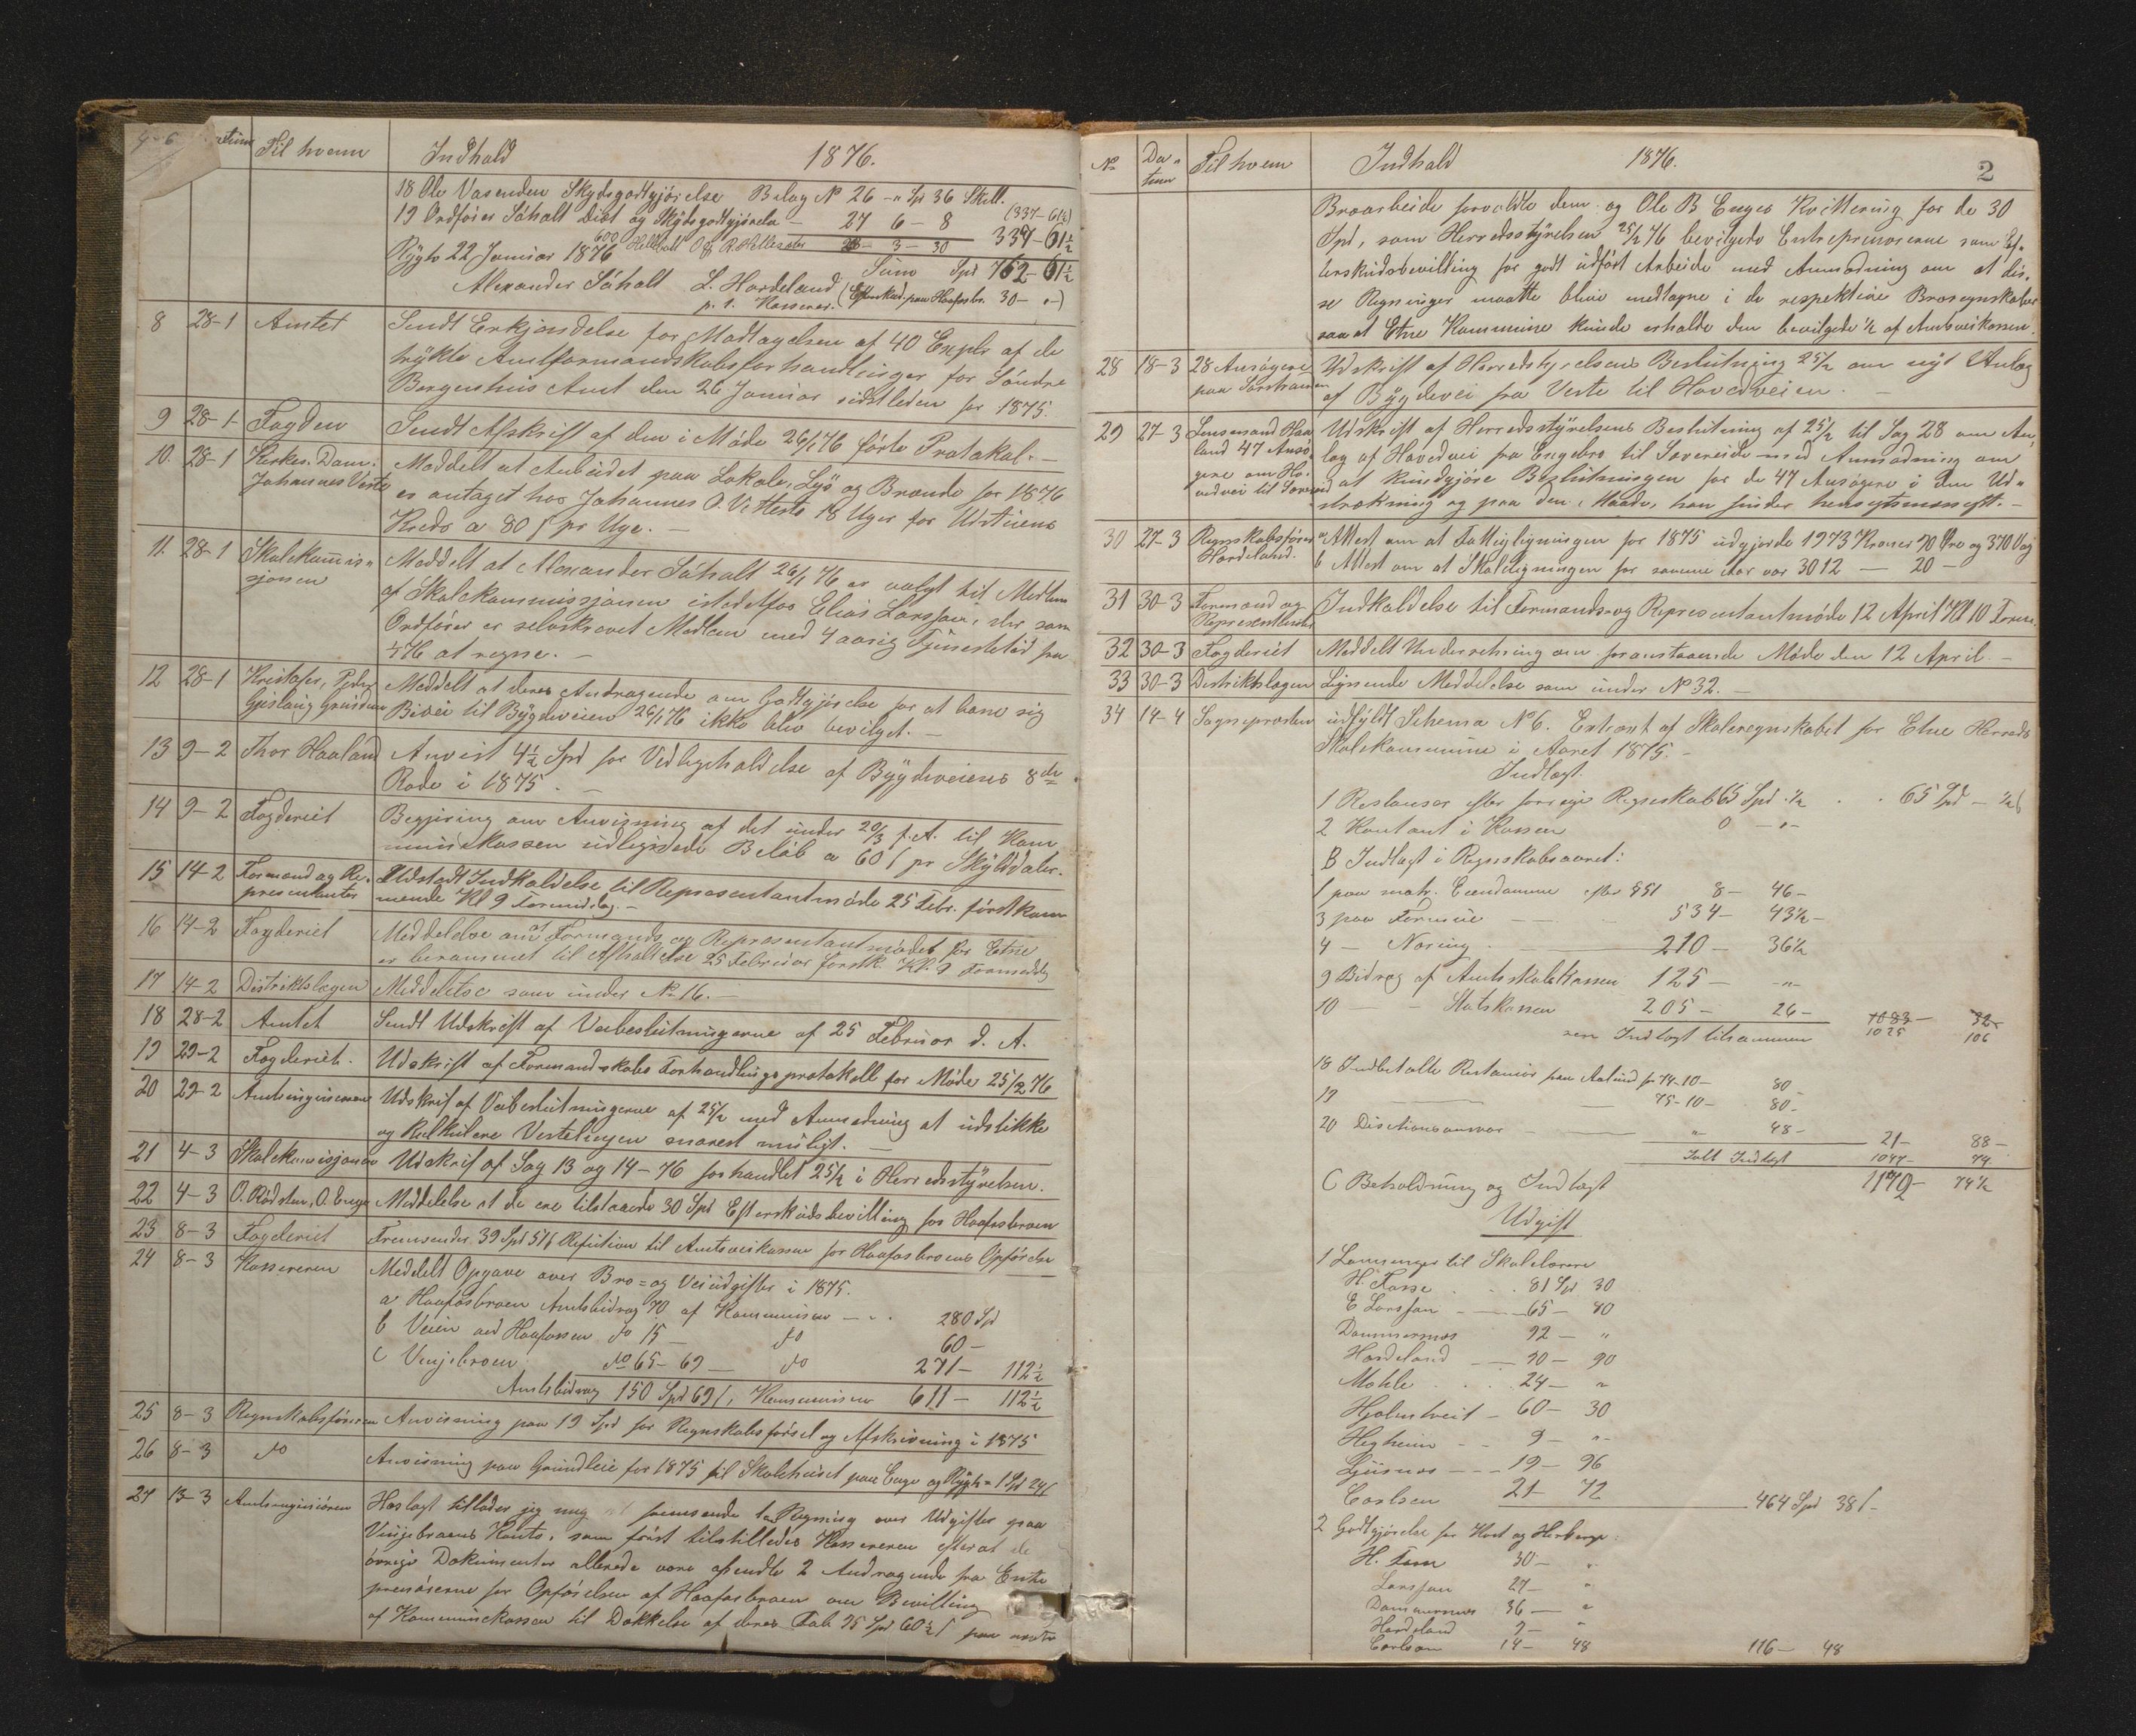 Til hvem Indhald 1876.
18 Ole Vasenden Skydsgodtgjørelse Belag No 26 - " Sp 36 Skill.
19 Ordfører Såhalt Diæt og Skydsgodtgjørelse - 27 6 - 8 (337-61½)
600 28 - 3 - 30 337-61½
Rygto 22 Januar 1876 Sum Spd 762-61½
Alexander Såhalt L. Hardeland (Efterskud. paa Haafosbr. 30 - " -)
p. t. Kasserer.
8 28-1 Amtet Sendt Erkjendelse for Modtagelsen af 40 Explr af de
trykte Amtformandskabsforhandlinger for Søndre
Bergenhus Amt den 26 Januar sidstleden for 1875.
9 28-1- Fogden Sendt Afskrift af den i Møde 26/1 76 førte Protokal. -
10. 28-1 Kirkes. Dam. Meddelt at Arbeidet paa Lokale, Lys og Brænde for 1876
Johannes Veste er antaget hos Johannes O. Vetteste 18 Uger for Udstuens
Kreds a 80 ſ pr Uge. -
11. 28-1 Skalekammis- Meddelt at Alexander Såhalt 26/1 76 er valgt til Medlem
sjonen af Skalekammissjonen istedetfor Elias Larssen, der som
Ordfører er selvskrevet Medlem med 4 aarig Tjenestetid fra
1/1 76 at regne. -
12 28-1 Kristofer, Peder Meddelt at deres Andragende om Godtgjørelse for at have sig
Gjislaug Grinden Bivei til Bygdeveien 26/1 76 ikke blev bevilget. -
13 9-2 Thor Haaland Anvist 4½ Spd for Vedligeholdelse af Bygdeveiens 8de
Rode i 1875. -
14 9-2 Fogderiet Begjæring om Anvisning af det under 20/3 f. A. til Kom
munekassen udlignede Beløb a 60 ſ pr Skylddaler.
15 14-2 Formænd og Re- Udstedt Indkaldelse til Representantmøde 25 Febr. førstkom
presentanter mende Kl 9 Formiddag. -
16 14-2 Fogderiet Meddelelse om at Formands og Representantmødet for Etne
er berammet til Afholdelse 25 Februar førstk. Kl. 9 Formiddag
17 14-2 Distriktslægen Meddelelse som under No 16. -
18 28-2 Amtet Sendt Udskrift af Veibeslutningerne af 25 Februar d. A.
19 29-2 Fogderiet. Udskrift af Formandskabs Forhandlingsprotokoll for Møde 25/2 76
20 29-2 Amtsingeniøren Udskrif af Veibeslutningerne af 25/2 med Anmodning at udstikke
og kalkulere Vesteliegen snarest muligt. -
21 4-3 Skalekamisjonen Udskrif af Sag 13 og 14-76 forhandlet 25/2 i Herredsstyrelsen.
22 4-3 O. Rødsten, O. Enge Meddelelse at de ere tilstaaede 30 Spd Efterskudsbevilling for Haafosbroen
23 8-3 Fogderiet Fremsender 39 Spd 51 ſ Refusion til Amtsveikassen for Haafosbroens Opførelse
24 8-3 Kassereren Meddelt Opgave over Bro= og Veiudgifter i 1875.
a Haafosbroen Amtsbidrag 70 af Kommunen - . . 280 Spd
b Veien ved Haafossen do 15 - do 60 -
c Vinjebroen do 65-69 - do 271 - 112½
Amtsbidrag 150 Spd 69 ſ, Kommunen 611 - 112½
25 8-3 Regnskabsføreren Anvisning paa 19 Spd for Regnskabsførsel og Afskrivning i 1875
26 8-3 do Anvisning paa Grundleie for 1875 til Skolehuset paa Enge og Rygh = 1 Spd 24 ſ
27 13-3 Amtsingeniøren Hoslagt tillader jeg mig at fremsende 1 Regning over Udgifter paa
Vinjebroens Konto, som først tilstilledes Kassereren efterat de
øvrige Dokumenter allerede vare afsendte 2 Andragende fra Entre
prenøserne for Opførelsen af Haafosbroen om Bevilling
af Kommunekassen til Dækkelse af deres Tab 75 Spd 60½ ſ paa
No Da- tum Til hvem Indhald 1876. 2
Broarbeide forvoldte dem og Ole B Enges Kvittering for de 30
Spd, som Herredsstyrelsen 25/2 76 bevilgede Entreprenøserne som Ef-
terskudsbevilling for godt udført Arbeide med Anmodning om at dis-
se Regninger maatte blive medtagne i de respektive Broregnskaber
saa at Etne Kommune kunde erholde den bevilgede ½ af Amtsveikassen.
28 18-3 28 Ansøgere Udskrift af Herredsstyrelsens Beslutning 25/2 om nyt Anlæg
paa af Bygdevei fra Veste til Hovedveien. -
29 27-3 Lensmand Haa Udskrift af Herredsstyrelsens Beslutning af 25/2 til Sag 28 om An-
land 47 Ansø- læg af Hovedvei fra Engebro til Sævereide med Anmodning om
gere om Ho- at kundgjøre Beslutningen for de 47 Ansøgere i den Ud-
vedvei til strækning og paa den Maade, han finder hensigtsmessigt. -
30 27-3 Regnskabsfører a Attest om at Fattigligningen for 1875 udgjorde 1973 Kroner 70 Øre og 370 Vog
Hardeland. b Attest om at Skoleligningen for samme Aar var 3012 - 20 -
31 30-3 Formænd og Indkaldelse til Formands- og Representantmøde 12 April Kl 10 Form.
Representanter
32 30-3 Fogderiet Meddelt Underretning om foranstaaende Møde den 12 April. -
33 30-3 Distriktslægen Lignende Meddelelse som under No 32. -
34 14-4 Sogneprosten udfyldt Schema No 6. Extract af Skoleregnskabet for Etne Herreds
Skolekommune i Aaret 1875. -
Indtægt.
1 Restanser efter forrige Regnskab 65 Spd ½ . . 65 Spd - ½ ſ
2 Kontant i Kassen 0 - " -
B Indtægt i Regnskabsaaret:
1 paa matr. Eiendomme efter §51 8 - 46 -
3 paa Formue - - 534 - 43½ -
4 - Næring - 210 - 36½
9 Bidrag af Amtsskolekassen 125 - - " -
10 - - Statskassen 205 - 26 -
ren Indtægt tilsammen 1083 - 32
1025 106
18 Indbetalte Restancer paa for 74-10 - 80 -
19 - - 75-10 - 80 -
20 - " 48 - 21 - 88 -
Ialt Indtægt 1047 - 74
C Beholdning og Indtægt 1112 - 74½
Udgift
1 Lønninger til Skolelærere
H. Fosse . . 81 Spd 30
E Larsson - 65 - 40
Dammersnes 92 - "
Hardeland - 30 - 90
Mohle . . . 24 - "
Hjolmtveit - 60 - 30
Hegheim - - 9 - " -
- - - 19 - 96
Carlsen 21 - 72 464 Spd 38 ſ -
2 Godtgjørelse for Kost og Herberge:
H. 30 - "
Larsson 27 - "
Dammersnes 36 - "
Hardeland 9 - "
Carlsen 14 - 48 116 - 48